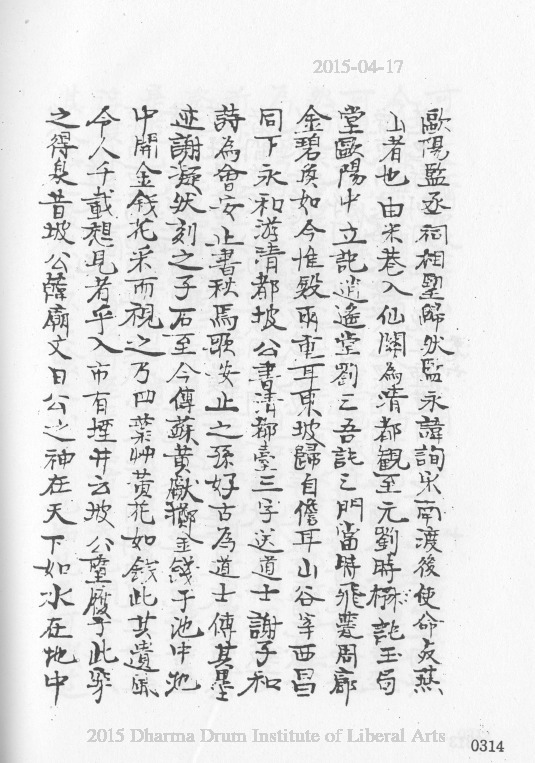 2015-04-17
歐陽監丞祠相望歸然監永諱詢宋南渡後使命反燕
山者也由米巷入仙關為清都觀至元劉時楙記玉局
堂歐陽中立記逍遙堂劉三吾記三門當時飛甍周廊
金碧奐如今惟毀兩重耳東坡歸自儋耳山谷宰西昌
同下永和游清都坡公書清都臺三字送道士謝子和
詩為會安止書秋馬歌安止之孫好古為道士傳其墨
迹謝凝然刻之子石至今傳蘇黃獻擲金錢于池中池
中開金錢花采而視之乃四葉艸黃花如錢此其遺風
今人千載想見者乎入市有堙井云坡公履于此穿
之得泉昔坡公韓廟文曰公之神在天下如水在地中
2015 Dharma Drum Institute of Liberal Arts
0314